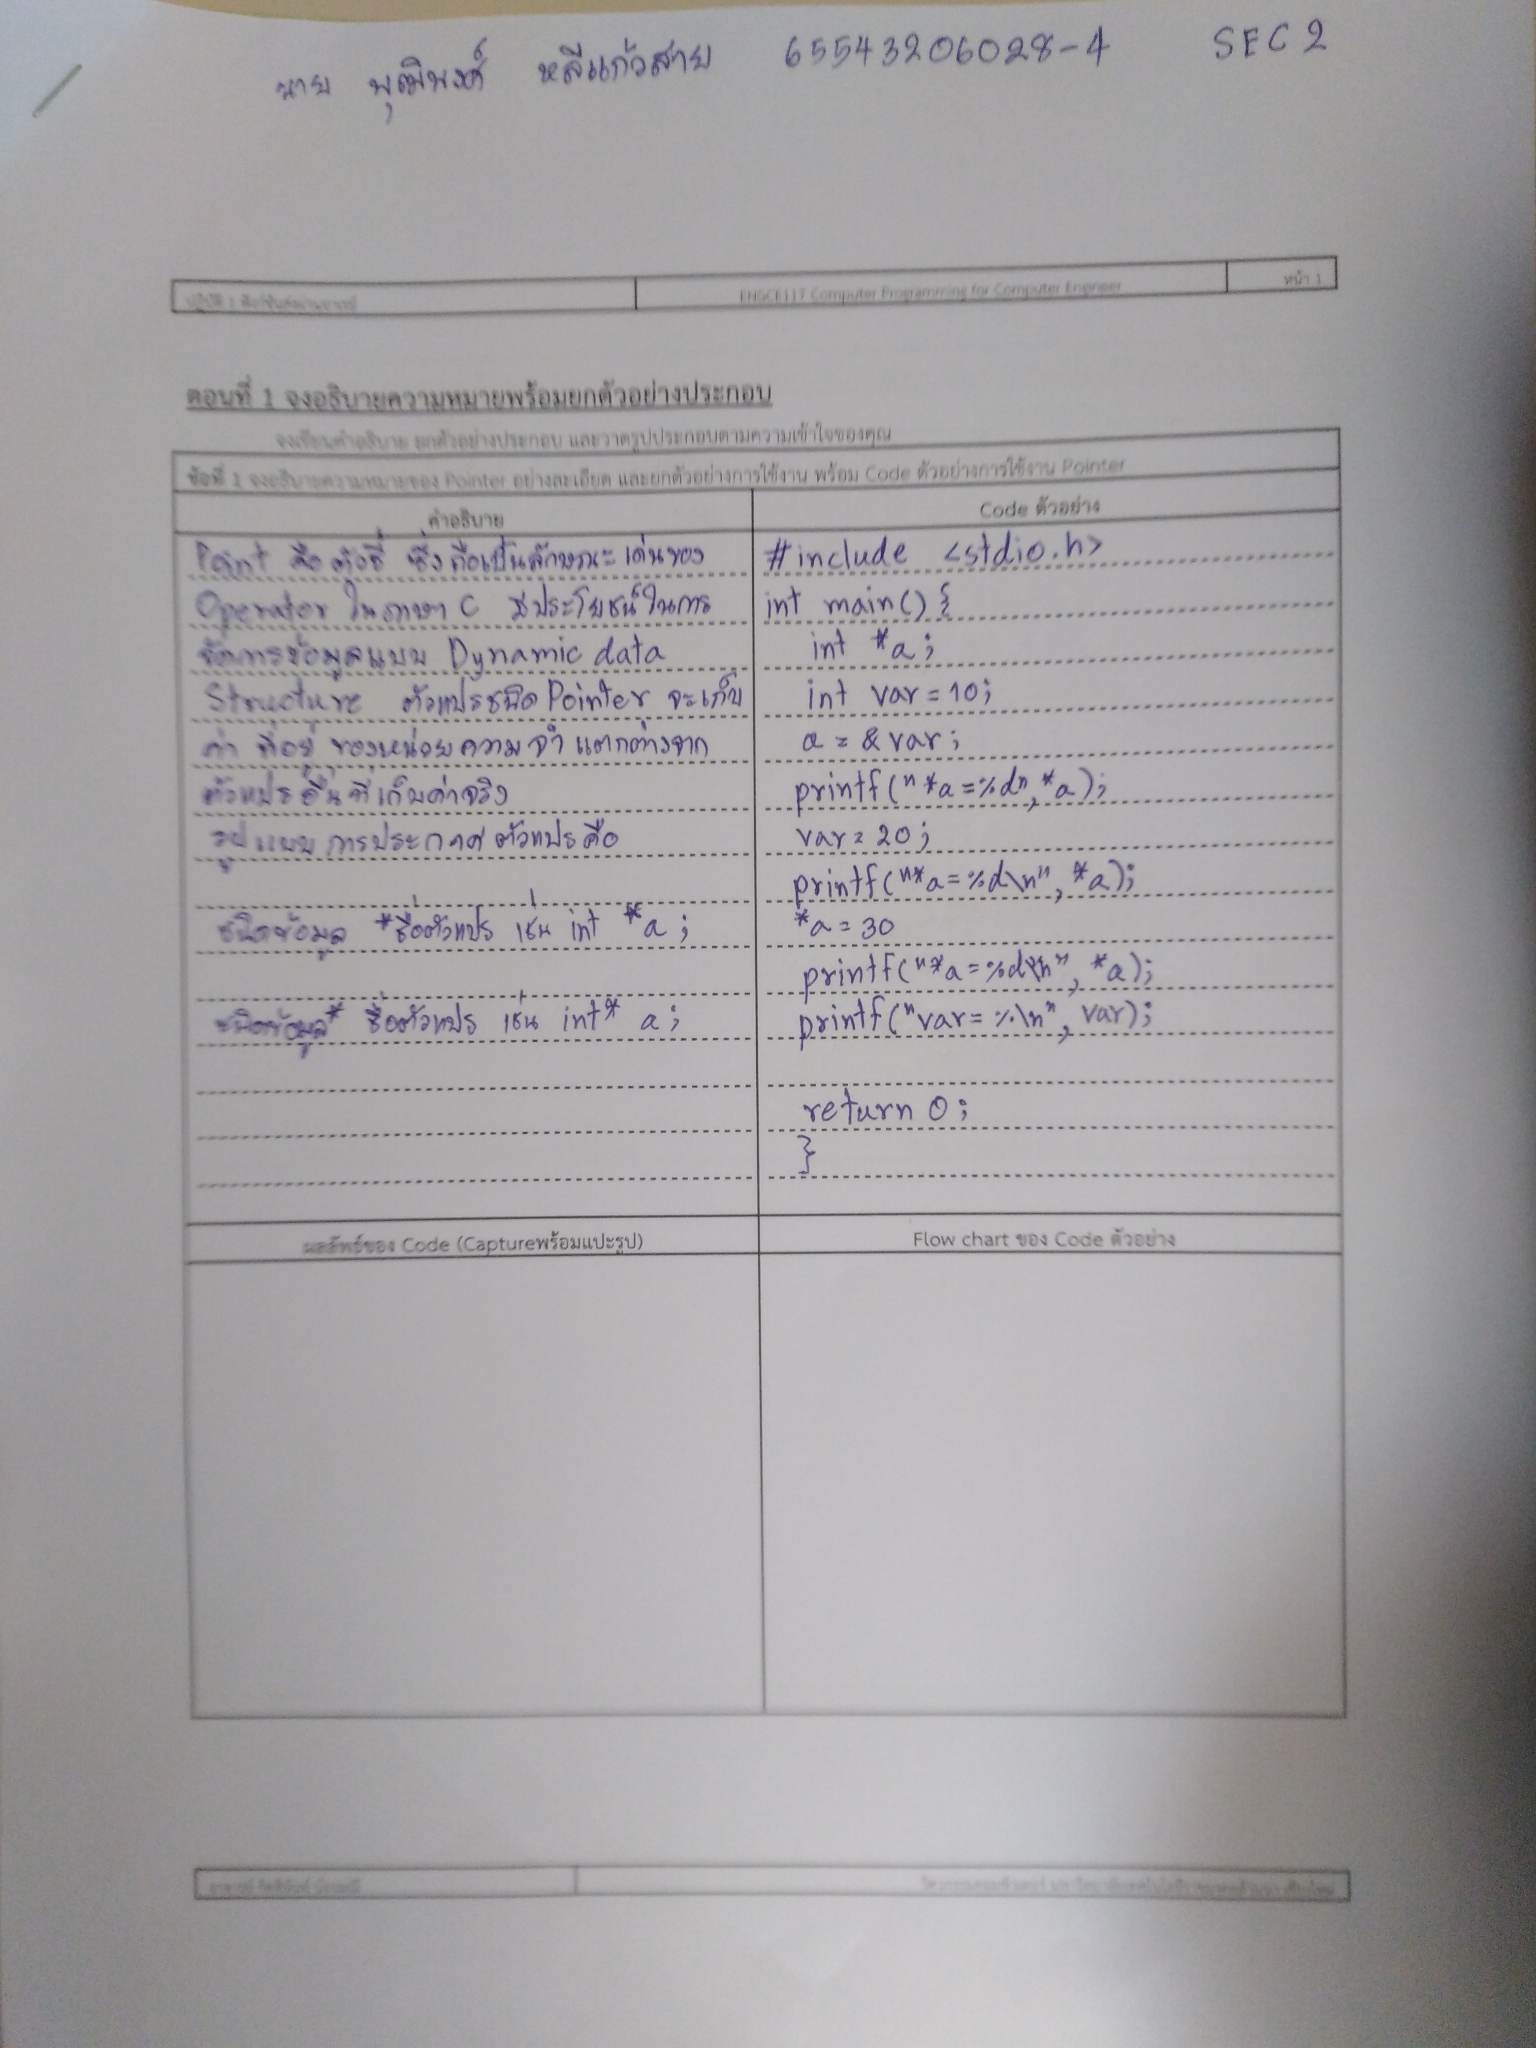 นาย พุฒิพงศ์ หลีแก้วสาย 65543206028-4 SEC 2
ENGCE117 Computer Programming for Computer Engineer
หน้า 1
ตอนที่ 1 จงอธิบายความหมายพร้อมยกตัวอย่างประกอบ
จงเขียนคำอธิบาย ยกตัวอย่างประกอบ และวาดรูปประกอบตามความเข้าใจของคุณ
ข้อที่ 1 จงอธิบายความหมายของ Pointer อย่างละเอียด และยกตัวอย่างการใช้งาน พร้อม Code ตัวอย่างการใช้งาน Pointer
คำอธิบาย
Point คือ ตัวชี้ ซึ่งถือเป็นลักษณะเด่นของ
Operator ในภาษา C มีประโยชน์ในการ
จัดการข้อมูลแบบ Dynamic data
Structure ตัวแปรชนิด Pointer จะเก็บ
ค่า ที่อยู่ ของหน่วยความจำ แตกต่างจาก
ตัวแปรอื่นที่เก็บค่าจริง
รูปแบบการประกาศตัวแปรคือ
ชนิดข้อมูล *ชื่อตัวแปร เช่น int *a;
ชนิดข้อมูล* ชื่อตัวแปร เช่น int* a;
Code ตัวอย่าง
#include <stdio.h>
int main() {
int *a;
int var = 10;
a = &var;
printf("*a=%d",*a);
var = 20;
printf("*a=%d\n", *a);
*a = 30
printf("*a=%d\n", *a);
printf("var=%\n", var);
return 0;
}
ผลลัพธ์ของ Code (Captureพร้อมแปะรูป)
Flow chart ของ Code ตัวอย่าง